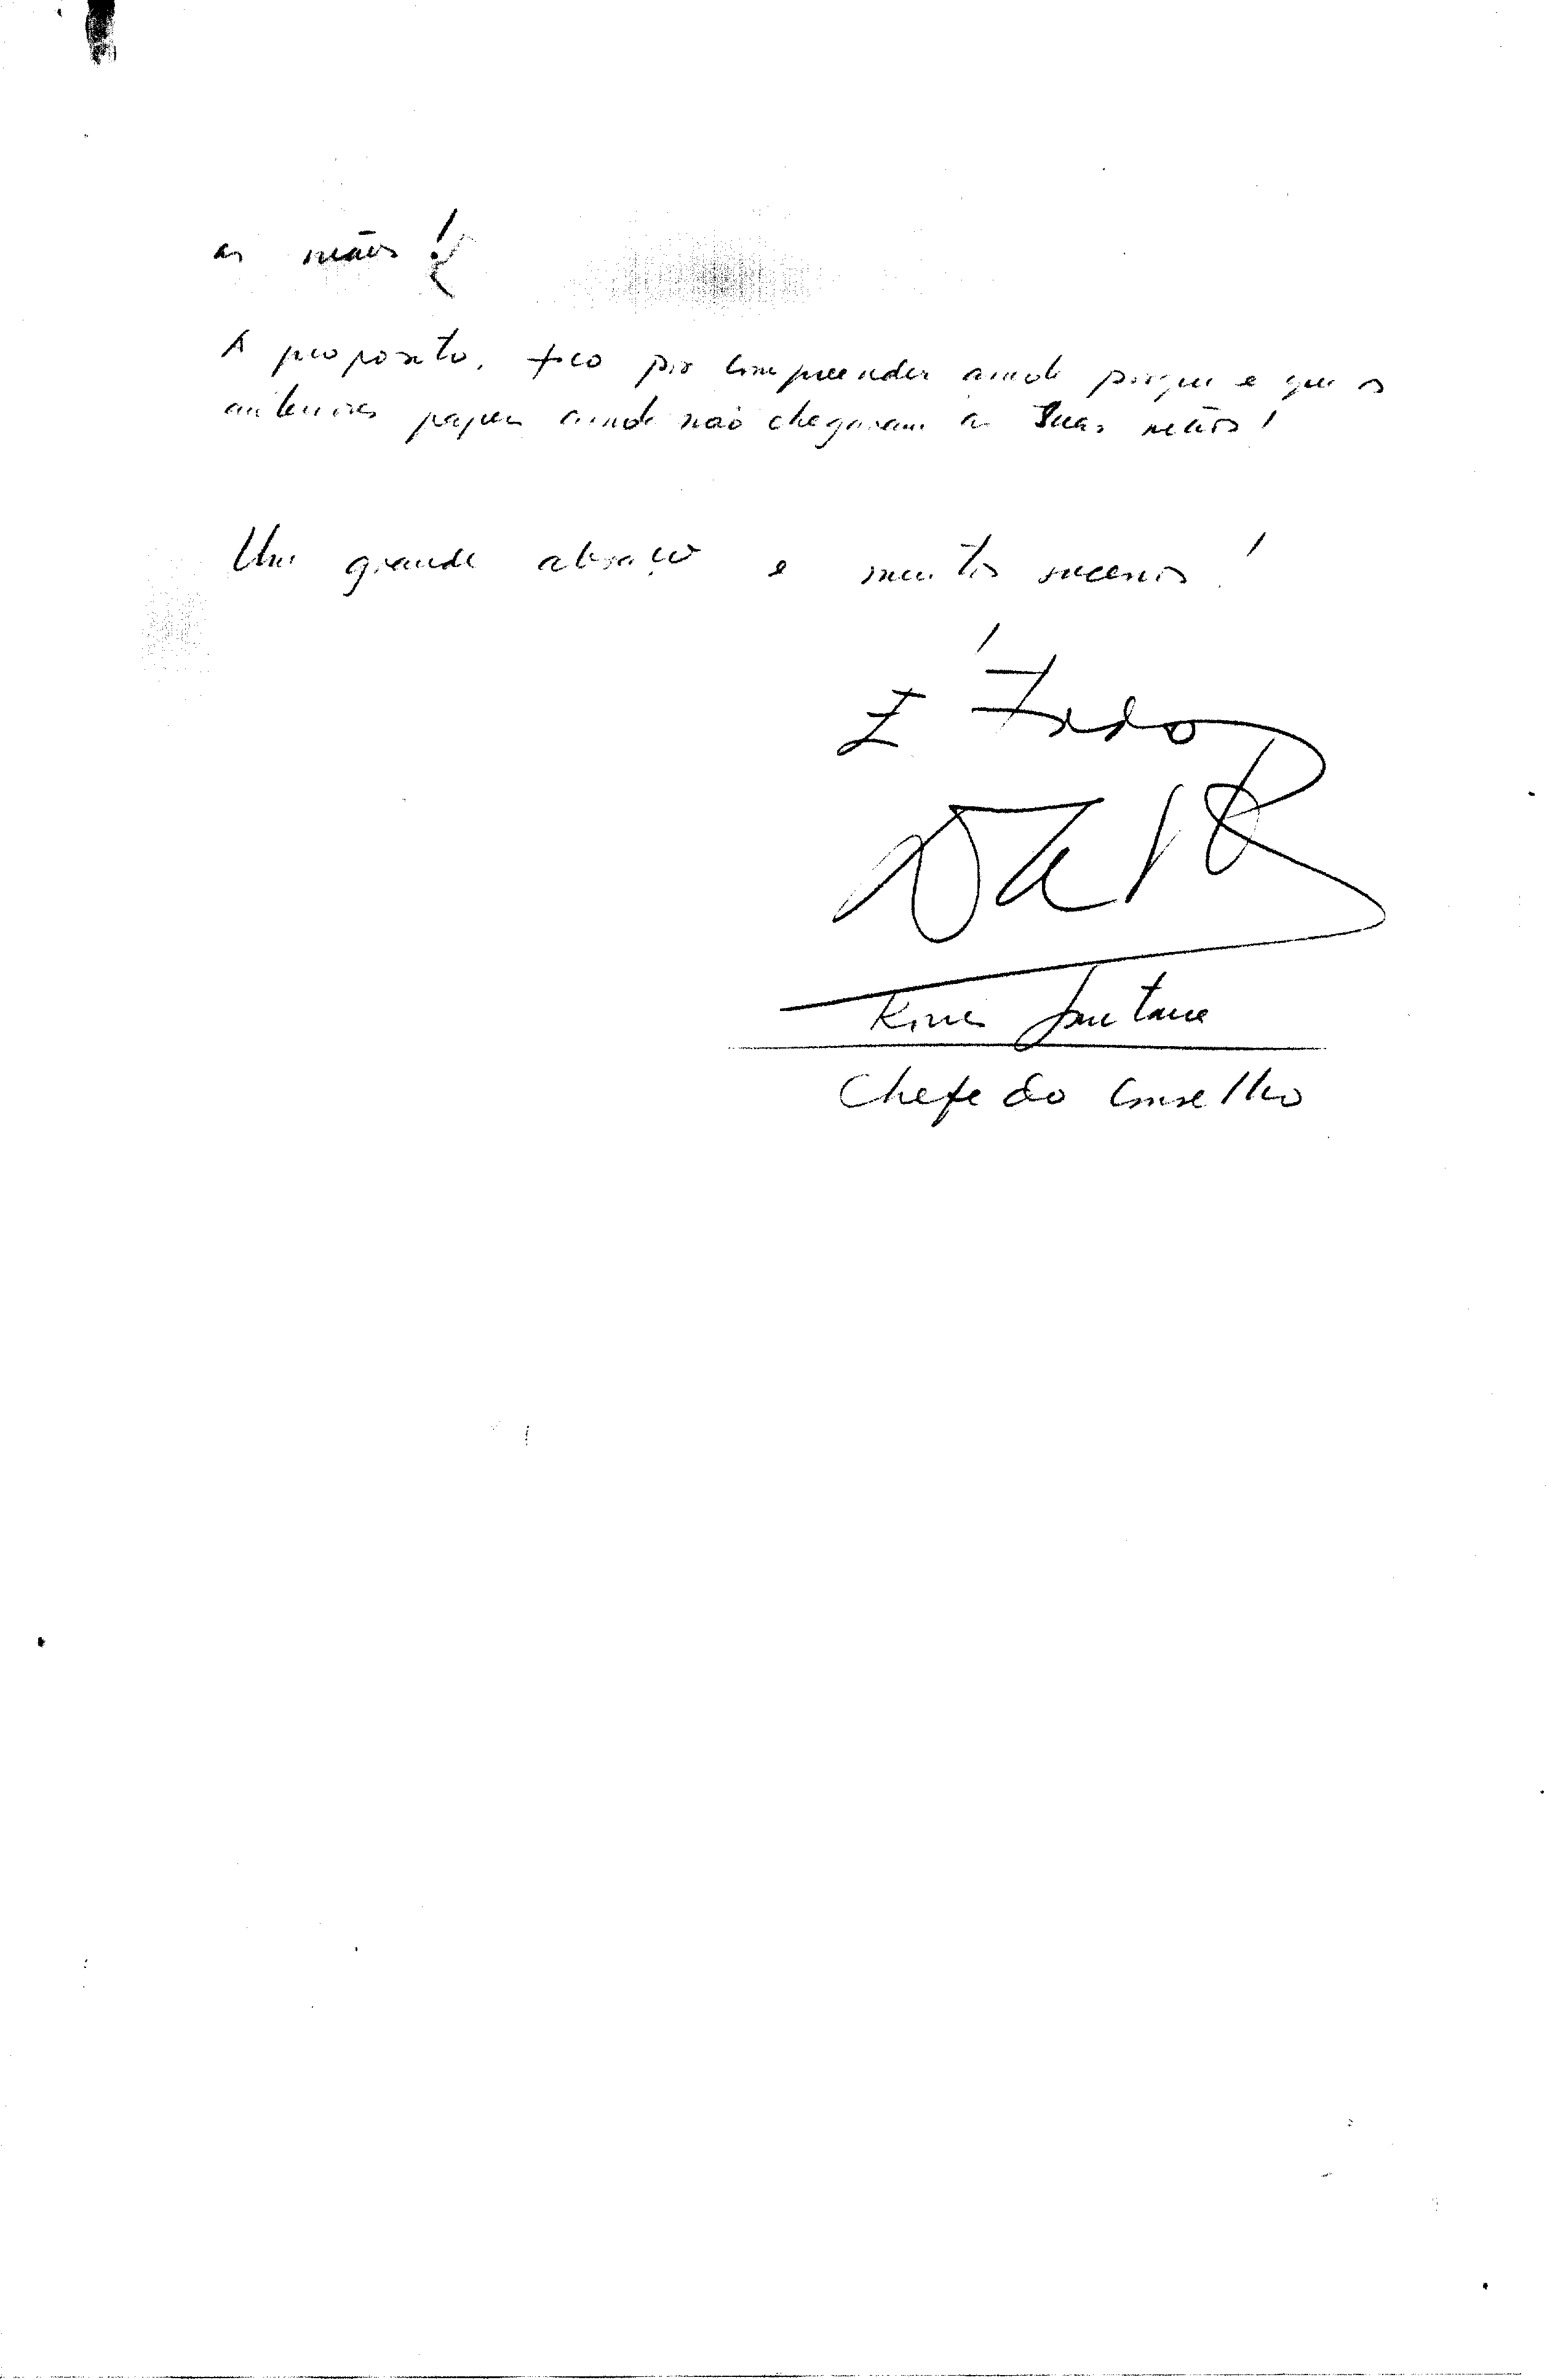 as mãos!
A proposito, fico por compreender ainda porque e que os
anteriores papeis ainda não chegaram as Suas mãos!
Um grande abraço e muitos sucessos!
Santana
Chefe do Conselho